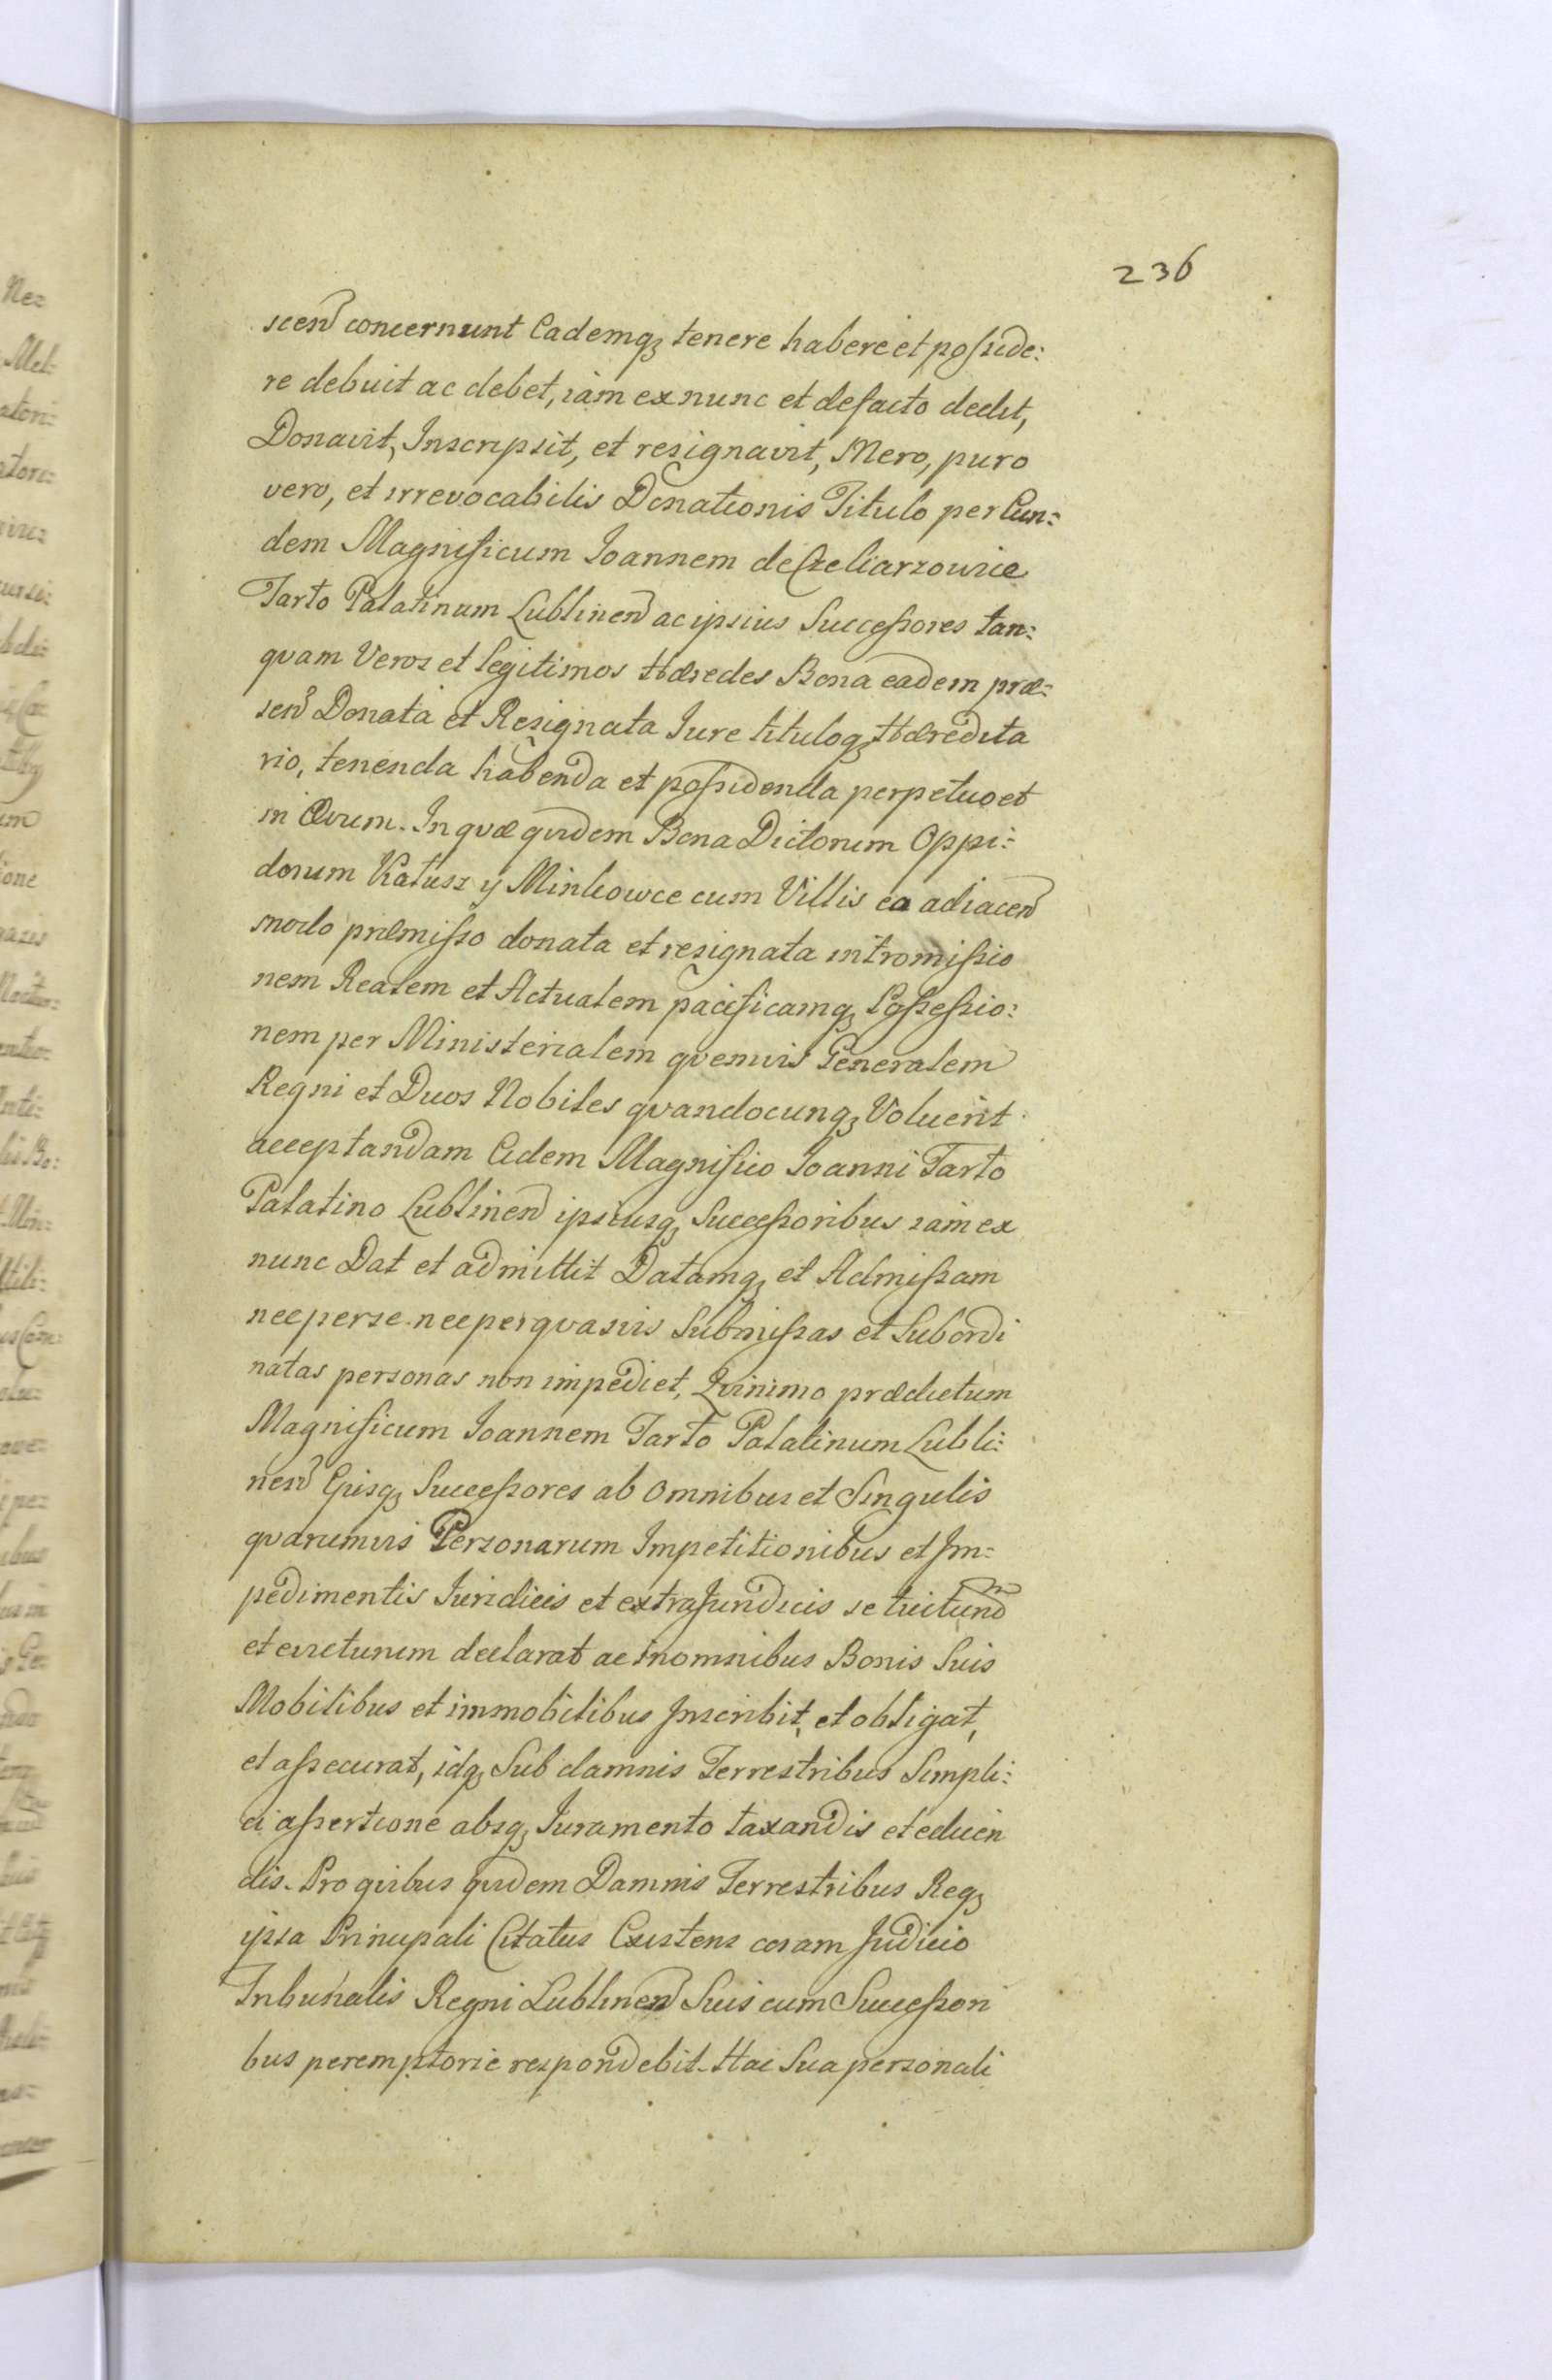 236
scen̄ concernunt Eademq₃ tenere habere et posside:
re debuit ac debet, iam ex nunc et defacto dedit,
Donavit, Inscripsit, et resignavit, Mero, puro
vero, et irrevocabilis Donationis Titulo per Eun:
dem Magnificum Ioannem de Czeliarzowice
Tarło Palatinum Lublinen̄ ac ipsius Successores tan:
quam Veros et Legitimos Hæredes Bona eadem præ:
sen̄ Donata et Resignata Iure tituloq₃ Hæredita
rio, tenenda habenda et possidenda perpetuo et
in Ævum. In quæ quidem Bona Dictorum Oppi:
dorum Katusz y Minkowce cum Villis ea adiacen̄
modo præmisso donata et resignata intromissio
nem Realem et Actualem pacificamq₃ Possessio:
nem per Ministerialem quemvis Generalem
Regni et Duos Nobiles quandocunq₃ Voluerit
acceptandam Eidem Magnifico Ioanni Tarło
Palatino Lublinen̄ ipsiusq₃ Successoribus iam ex
nunc Dat et admittit Datamq₃ et Admissam
nec per se nec per quasvis Submissas et Subordi
natas personas non impediet, Quinimo prædictum
Magnificum Ioannem Tarło Palatinum Lubli:
nen̄ Ejusq₃ Successores ab omnibus et Singulis
quarumvis Personarum Impetitionibus et Im:
pedimentis Iuridicis et extrajuridicis se tuitur̄
et evicturum declarat ac in omnibus Bonis Suis
Mobilibus et immobilibus Inscribit, et obligat,
et assecurat, idq₃ Sub damnis Terrestribus Simpli:
ci assertione absq₃ Iuramento taxandis et educen
dis. Pro quibus quidem Damnis Terrestribus Req₃
ipsa Principali Citatus Existens coram Judicio
Tribunalis Regni Lublinen̄ Suis cum Successori
bus peremptorie respondebit. Hac Sua personali